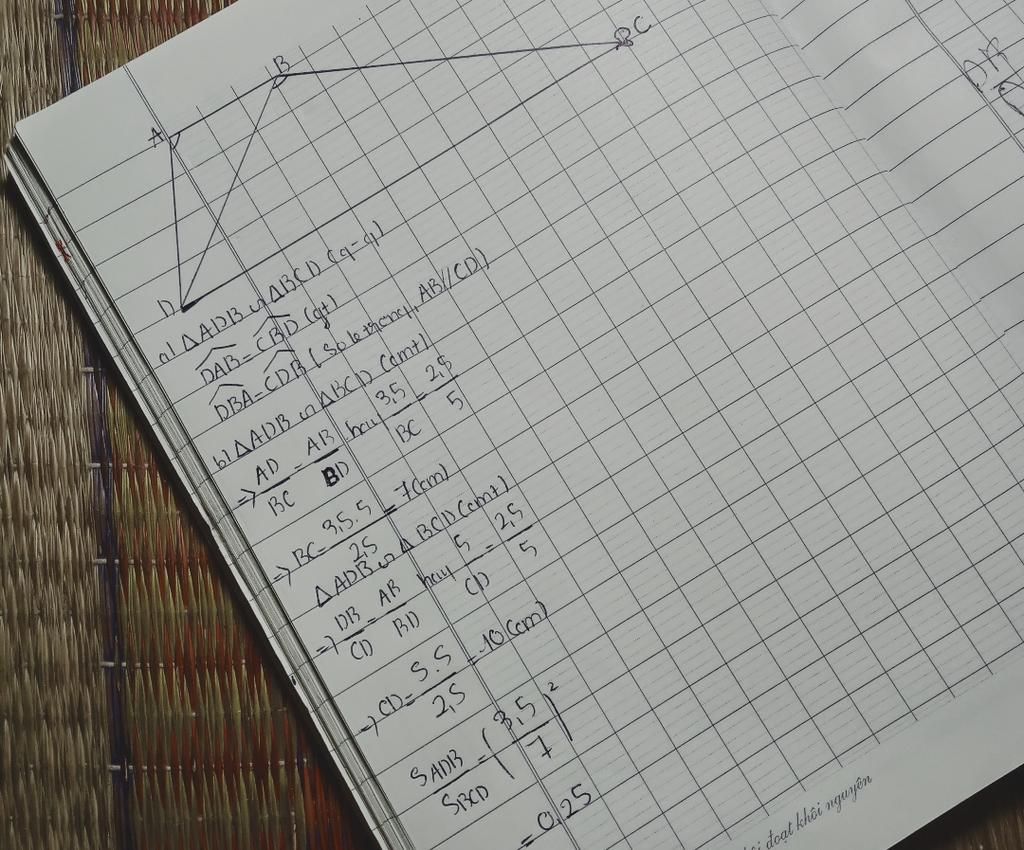 A
B
C
D
a) ΔADB ∽ ΔBCD (g-g)
DAB = CBD (gt)
DBA = CDB (So le trong, AB//CD)
b) ΔADB ∽ ΔBCD (cmt)
=> AD/BC = AB/BD hay 3,5/BC = 2,5/5
=> BC = 3,5.5/2,5 = 7(cm)
ΔADB ∽ ΔBCD (cmt)
=> DB/CD = AB/BD hay 5/CD = 2,5/5
=> CD = 5.5/2,5 = 10(cm)
SADB/SBCD = (3,5/7)²
= 0,25
đoạt khôi nguyên